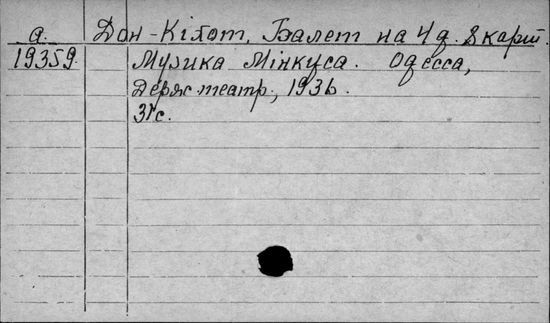 а. Дон-Кіхот. Балет на 4 д. 8 карт.
19359. Музика Мінкуса. Одесса,
Держ театр, 1936.
31с.